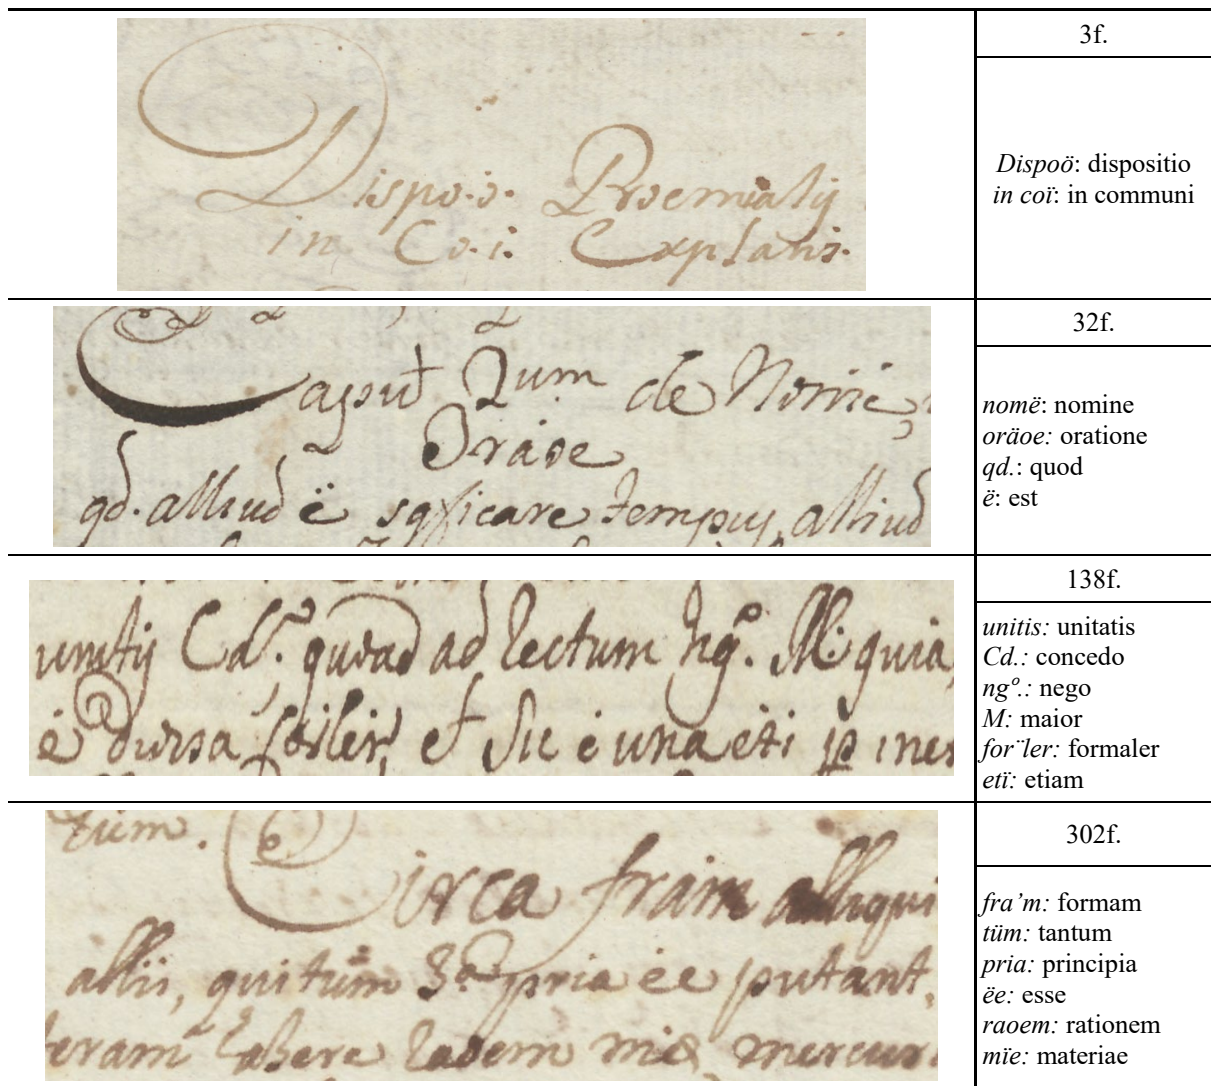 Dispo.o. Proemialij
in Co.i. Explanr.
3f.
Dispoö: dispositio
in coï: in communi
Caput 2um de Nomie,
Oräoe
qd. alliud ë sgficare tempus, alliud
32f.
nomë: nomine
oräoe: oratione
qd.: quod
ë: est
unitis Cd.º quoad ad lectum ngº. M: quia
ë diversa forler, et sic ë una eti
138f.
unitis: unitatis
Cd.: concedo
ngº.: nego
M: maior
for¨ler: formaler
etï: etiam
tum.
Circa fram alliqui
allii, qui tüm 3ª pria ëe putant.
302f.
fra’m: formam
tüm: tantum
pria: principia
ëe: esse
raoem: rationem
mïe: materiae